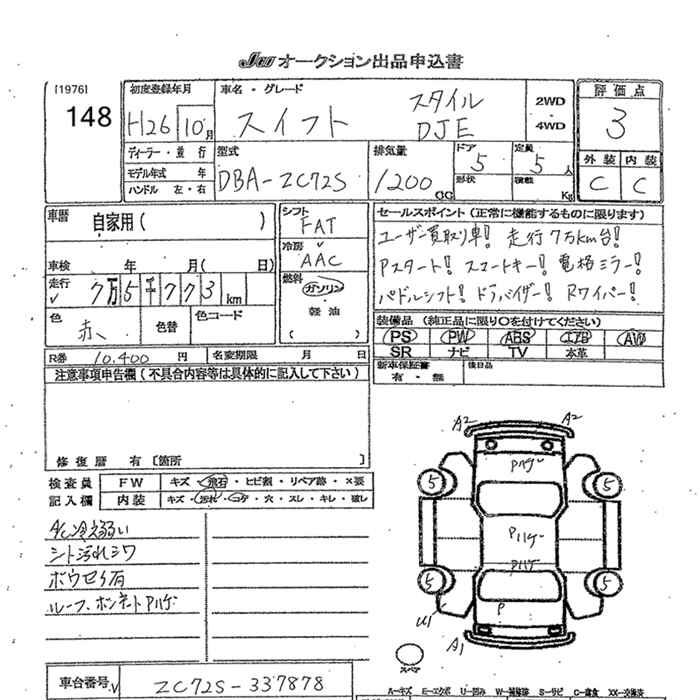 JU オークション出品申込書
[1976]
148
初度登録年月
H26 10月
車名・グレード
スイフト スタイル DJE
2WD
4WD
評価点
3
外装 内装
C C
ディーラー・並行
モデル年式 年
ハンドル 左・右
型式
DBA-ZC72S
排気量
1200 CC
ドア
5
形状
定員
5人
積載 Kg
車歴 自家用( )
車検 年 月( 日)
走行 7万5千773km
色 赤、
色替
色コード
シフト
FAT
冷房
AAC
燃料
ガソリン
軽油
( )
セールスポイント(正常に機能するものに限ります)
ユーザー買取り車! 走行7万km台!
Pスタート! スマートキー! 電格ミラー!
パドルシフト! ドラバイザー! Rワイパー!
装備品(純正品に限り○を付けてください)
PS PW ABS エアB AW
SR ナビ TV 本革
新車保証書
有・無
後日品
R番 10,400 円
名変期限 月 日
注意事項申告欄(不具合内容等は具体的に記入して下さい)
修復歴 有〔箇所 〕
検査員
記入欄
FW キズ・飛石・ヒビ割・リペア跡・×要
内装 キズ・汚れ・コゲ・穴・スレ・キレ・破レ
A/C冷え弱い
シート汚れシワ
ボウセイ有
ルーフ、ボンネットPハゲ
A2 A2
Pハゲ
5 5
Pハゲ
Pハゲ
5 5
P
U1
A1
スペア
車台番号
ZC72S-337878
A-キズ E-エクボ U-凹み W-補修跡 S-サビ C-腐食 XX-交換済